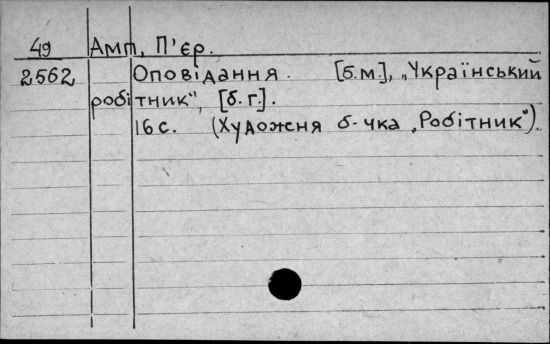 49 Амп, П'єр.
2562 Оповідання. [б.м.], „Український
робітник", [б.г.].
16 с. (Художня б-чка „Робітник").